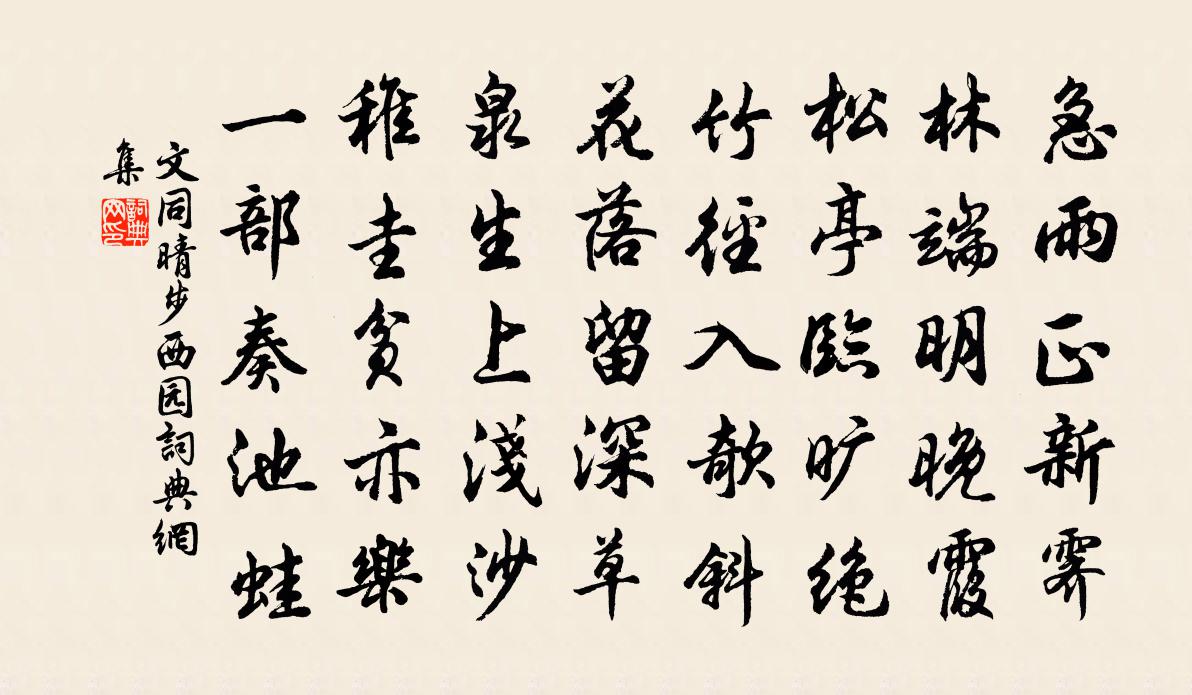 急雨正新霽
林端明晚霞
松亭臨旷絶
竹徑入欹斜
花落留深草
泉生上淺沙
稚圭贫亦樂
一部奏池蛙
文同晴步西园詞典網
集
詞典
网印